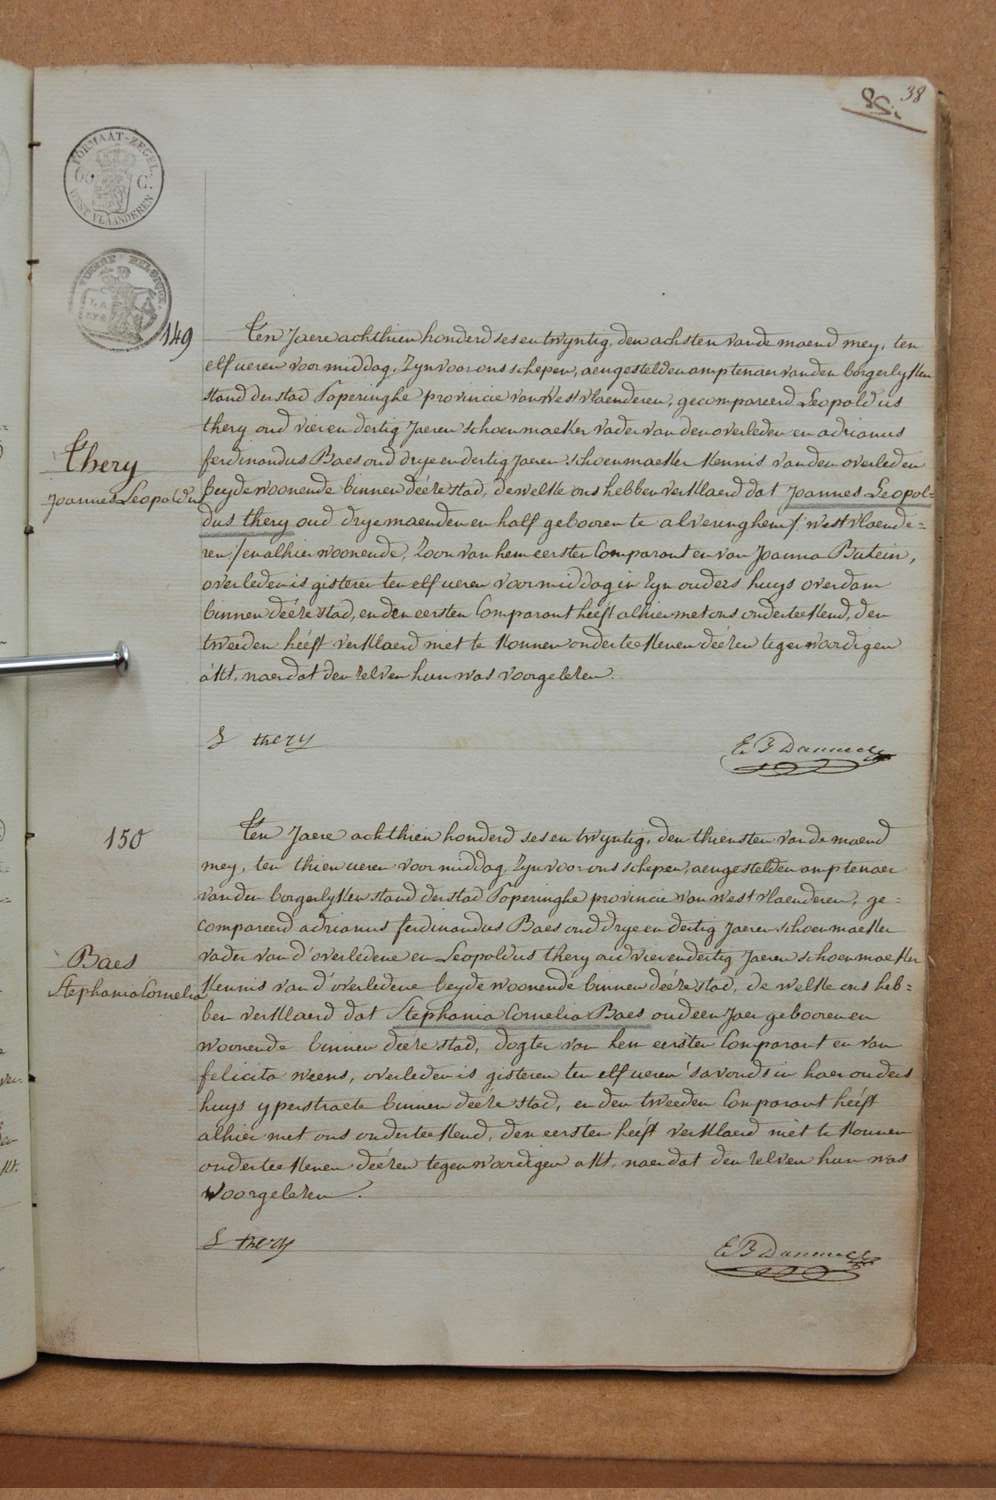 38
FORMAAT-ZEGEL
60 C:
WEST VLAANDEREN
149
Ten Jaere achthien honderd ses en twyntig, den achsten van de maend mey, ten
elf ueren voormiddag, Zyn voor ons schepen, aengestelden amptenaer van den borgerlyken
stand der stad Poperinghe provincie van West vlaenderen, gecompareerd Leopoldus
thery oud vier en dertig Jaeren schoenmaeker vader van den overleden en adrianus
ferdinandus Baes oud drye en dertig Jaeren schoenmaeker kennis van den overleden
Thery
Joannes Leopoldus
beyde woonende binnen deéze stad, de welke ons hebben verklaerd dat Joannes Leopol-
dus thery oud drye maenden en half gebooren te alveringhem /: west vlaende=
ren / en alhier woonende, Zoon van hem eersten Comparant en van Joanna Butein,
overleden is gisteren ten elf ueren voormiddag in Zyn ouders huys overdam
binnen deéze stad, en den eersten Comparant heéft alhier met ons onderteekend, den
tweeden heéft verklaerd niet te konnen onderteekenen deézen tegenwoordigen
akt, naer dat den zelven hun was voorgelezen.
L thery
150
Ten Jaere achthien honderd ses en twyntig, den thiensten van de maend
mey, ten thien ueren voormiddag, Zyn voor ons schepen, aengestelden amptenaer
van den borgerlyken stand der stad Poperinghe provincie van west vlaenderen, ge=
compareerd adrianus ferdinandus Baes oud drye en dertig Jaeren schoenmaeker
vader van d'overledene en Leopoldus thery oud vier en dertig Jaeren schoenmaeker
Baes
Stephania Cornelia
kennis van d'overledene beyde woonende binnen deéze stad, de welke ons heb=
ben verklaerd dat Stephania Cornelia Baes oud een Jaer gebooren en
woonende binnen deéze stad, dogter van hem eersten Comparant en van
felicita weens, overleden is gisteren ten elf ueren 's avonds in haer ouders
huys yperstraete binnen deéze stad, en den tweeden Comparant heéft
alhier met ons onderteekend, den eersten heeft verklaerd niet te konnen
onderteekenen deézen tegenwoordigen akt, naer dat den zelven hun was
voorgelezen.
L thery